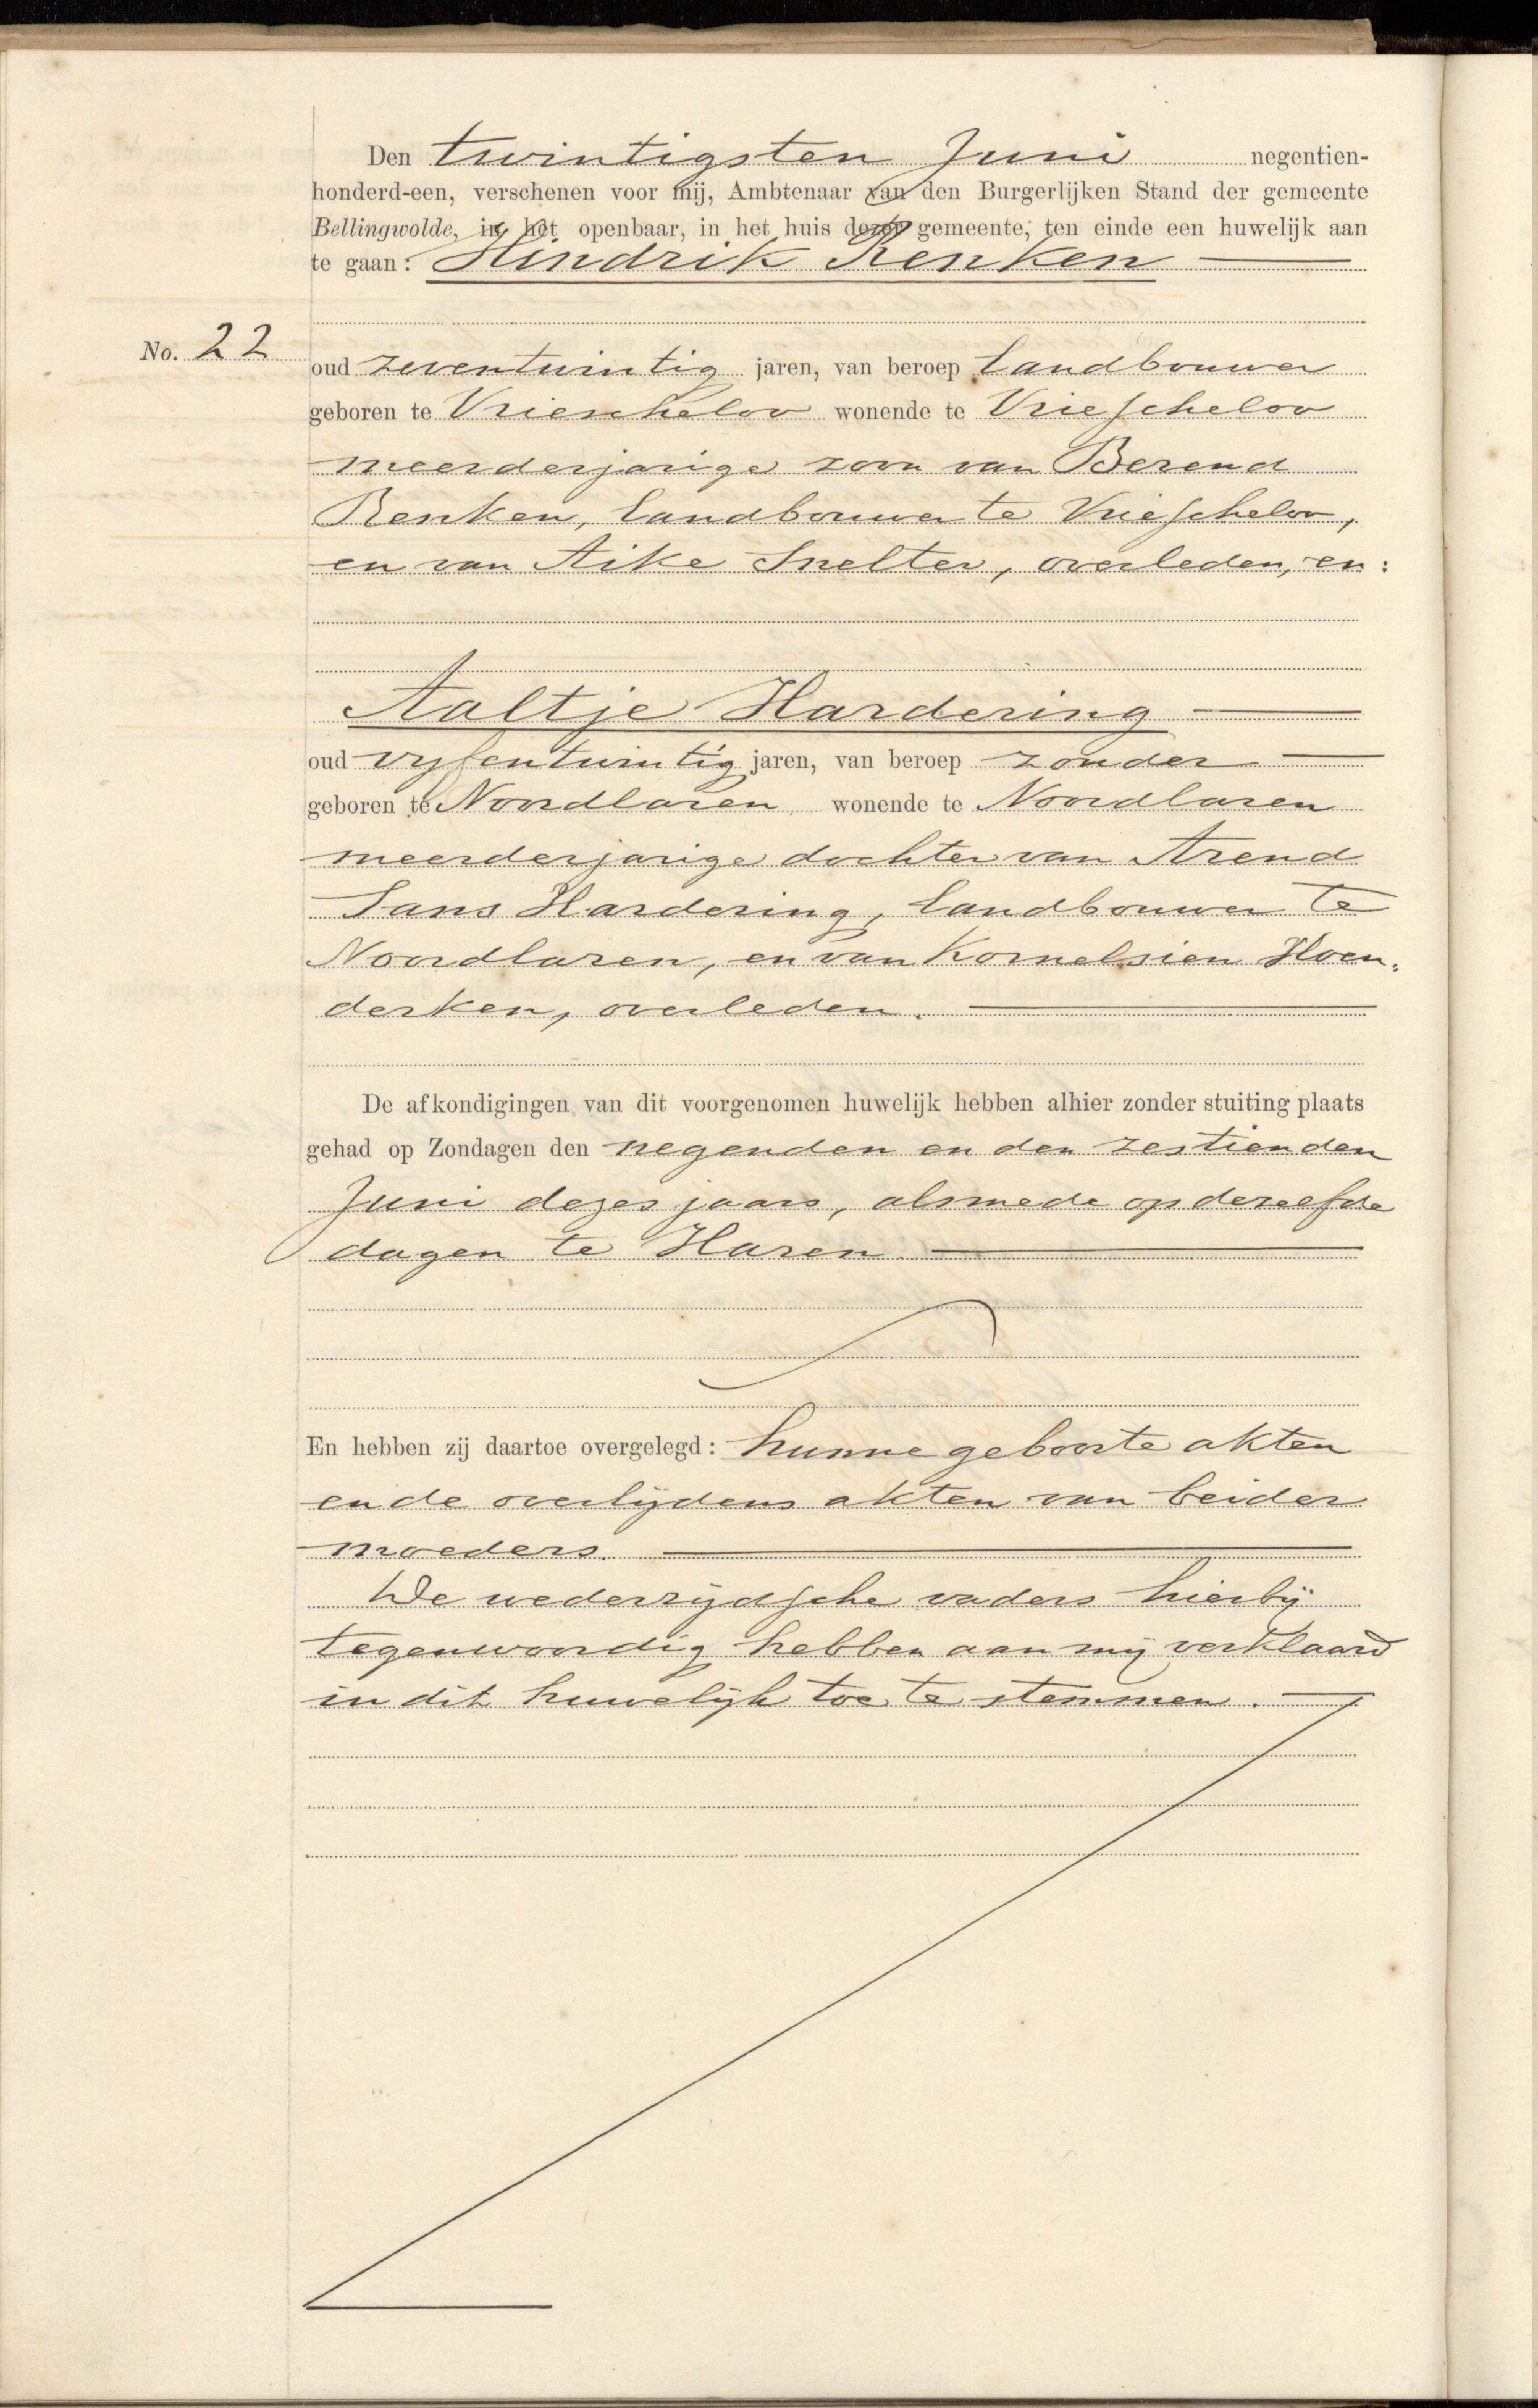 Den twintigsten Juni negentien-
honderd-een, verschenen voor mij, Ambtenaar van den Burgerlijken Stand der gemeente
Bellingwolde, in het openbaar, in het huis dezer gemeente, ten einde een huwelijk aan
te gaan: Hindrik Renken
No. 22
oud zeventwintig jaren, van beroep landbouwer
geboren te Vriescheloo wonende te Vriescheloo
meerderjarige zoon van Berend
Renken, landbouwer te Vriescheloo,
en van Aike Snelter, overleden, en:
Aaltje Hardering
oud vyfentwintig jaren, van beroep zonder
geboren te Noordlaren wonende te Noordlaren
meerderjarige dochter van Arend
Jans Hardering, landbouwer te
Noordlaren, en van Kornelsien Hoen„
derken, overleden.
De afkondigingen van dit voorgenomen huwelijk hebben alhier zonder stuiting plaats
gehad op Zondagen den negenden en den zestienden
Juni dezes jaars, alsmede op dezelfde
dagen te Haren.
En hebben zij daartoe overgelegd: hunne geboorte akten
en de overlijdens akten van beider
moeders.
De wederzijdsche vaders hierbij
tegenwoordig hebben aan mij verklaard
in dit huwelijk toe te stemmen.